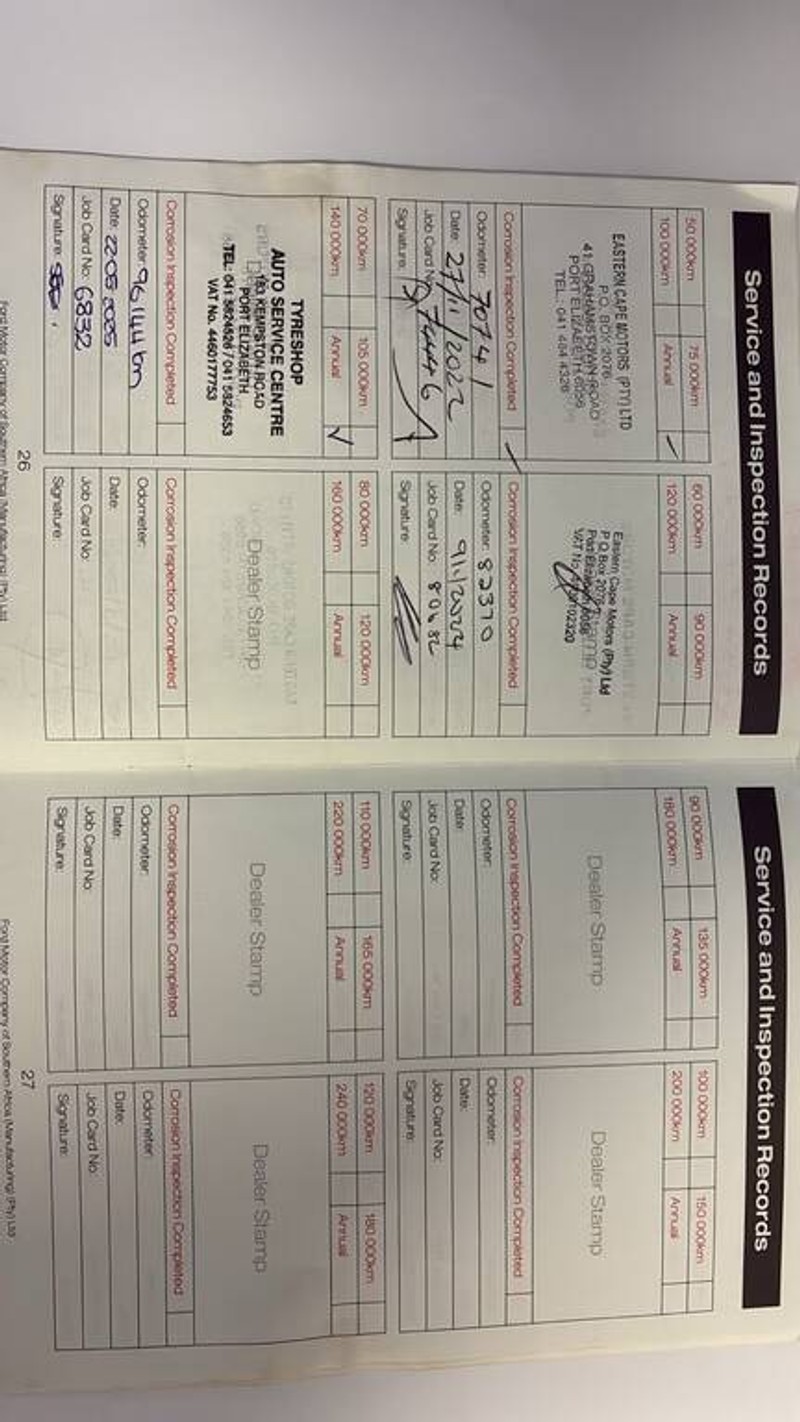 Service and Inspection Records
50 000km
75 000km
100 000km
Annual
EASTERN CAPE MOTORS (PTY) LTD
P.O. BOX 2076
41 GRAHAMSTOWN ROAD
PORT ELIZABETH 6056
TEL.: 041 484 4326
Corrosion Inspection Completed
Odometer: 70741
Date: 27/11/2022
Job Card No: 74446
Signature:
60 000km
90 000km
120 000km
Annual
Eastern Cape Motors (Pty) Ltd
P O Box 2076
Port Elizabeth
VAT No
02320
Corrosion Inspection Completed
Odometer: 82370
Date: 9/1/2024
Job Card No: 80682
Signature:
70 000km
105 000km
140 000km
Annual
TYRESHOP
AUTO SERVICE CENTRE
183 KEMPSTON ROAD
PORT ELIZABETH
TEL: 041 5824526 / 041 5824653
VAT No. 4460177753
Corrosion Inspection Completed
Odometer: 96144 km
Date: 22-05-2025
Job Card No: 6832
Signature:
80 000km
120 000km
160 000km
Annual
Dealer Stamp
Corrosion Inspection Completed
Odometer:
Date:
Job Card No:
Signature:
26
Ford Motor Company of Southern Africa (Manufacturing) (Pty) Ltd
Service and Inspection Records
90 000km
135 000km
180 000km
Annual
Dealer Stamp
Corrosion Inspection Completed
Odometer:
Date:
Job Card No:
Signature:
100 000km
150 000km
200 000km
Annual
Dealer Stamp
Corrosion Inspection Completed
Odometer:
Date:
Job Card No:
Signature:
110 000km
165 000km
220 000km
Annual
Dealer Stamp
Corrosion Inspection Completed
Odometer:
Date:
Job Card No:
Signature:
120 000km
180 000km
240 000km
Annual
Dealer Stamp
Corrosion Inspection Completed
Odometer:
Date:
Job Card No:
Signature:
27
Ford Motor Company of Southern Africa (Manufacturing) (Pty) Ltd